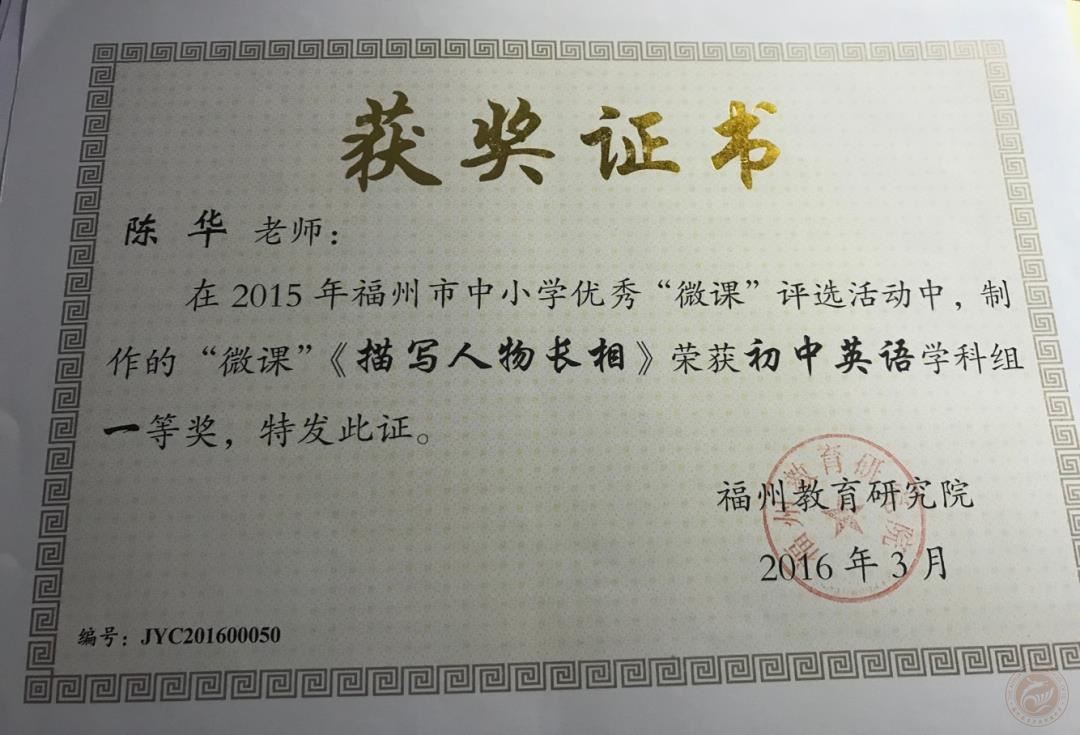 获奖证书
陈华 老师：
在2015年福州市中小学优秀“微课”评选活动中，制
作的“微课”《描写人物长相》荣获初中英语学科组
一等奖，特发此证。
福州教育研究院
福州教育研究院
2016年3月
编号：JYC201600050